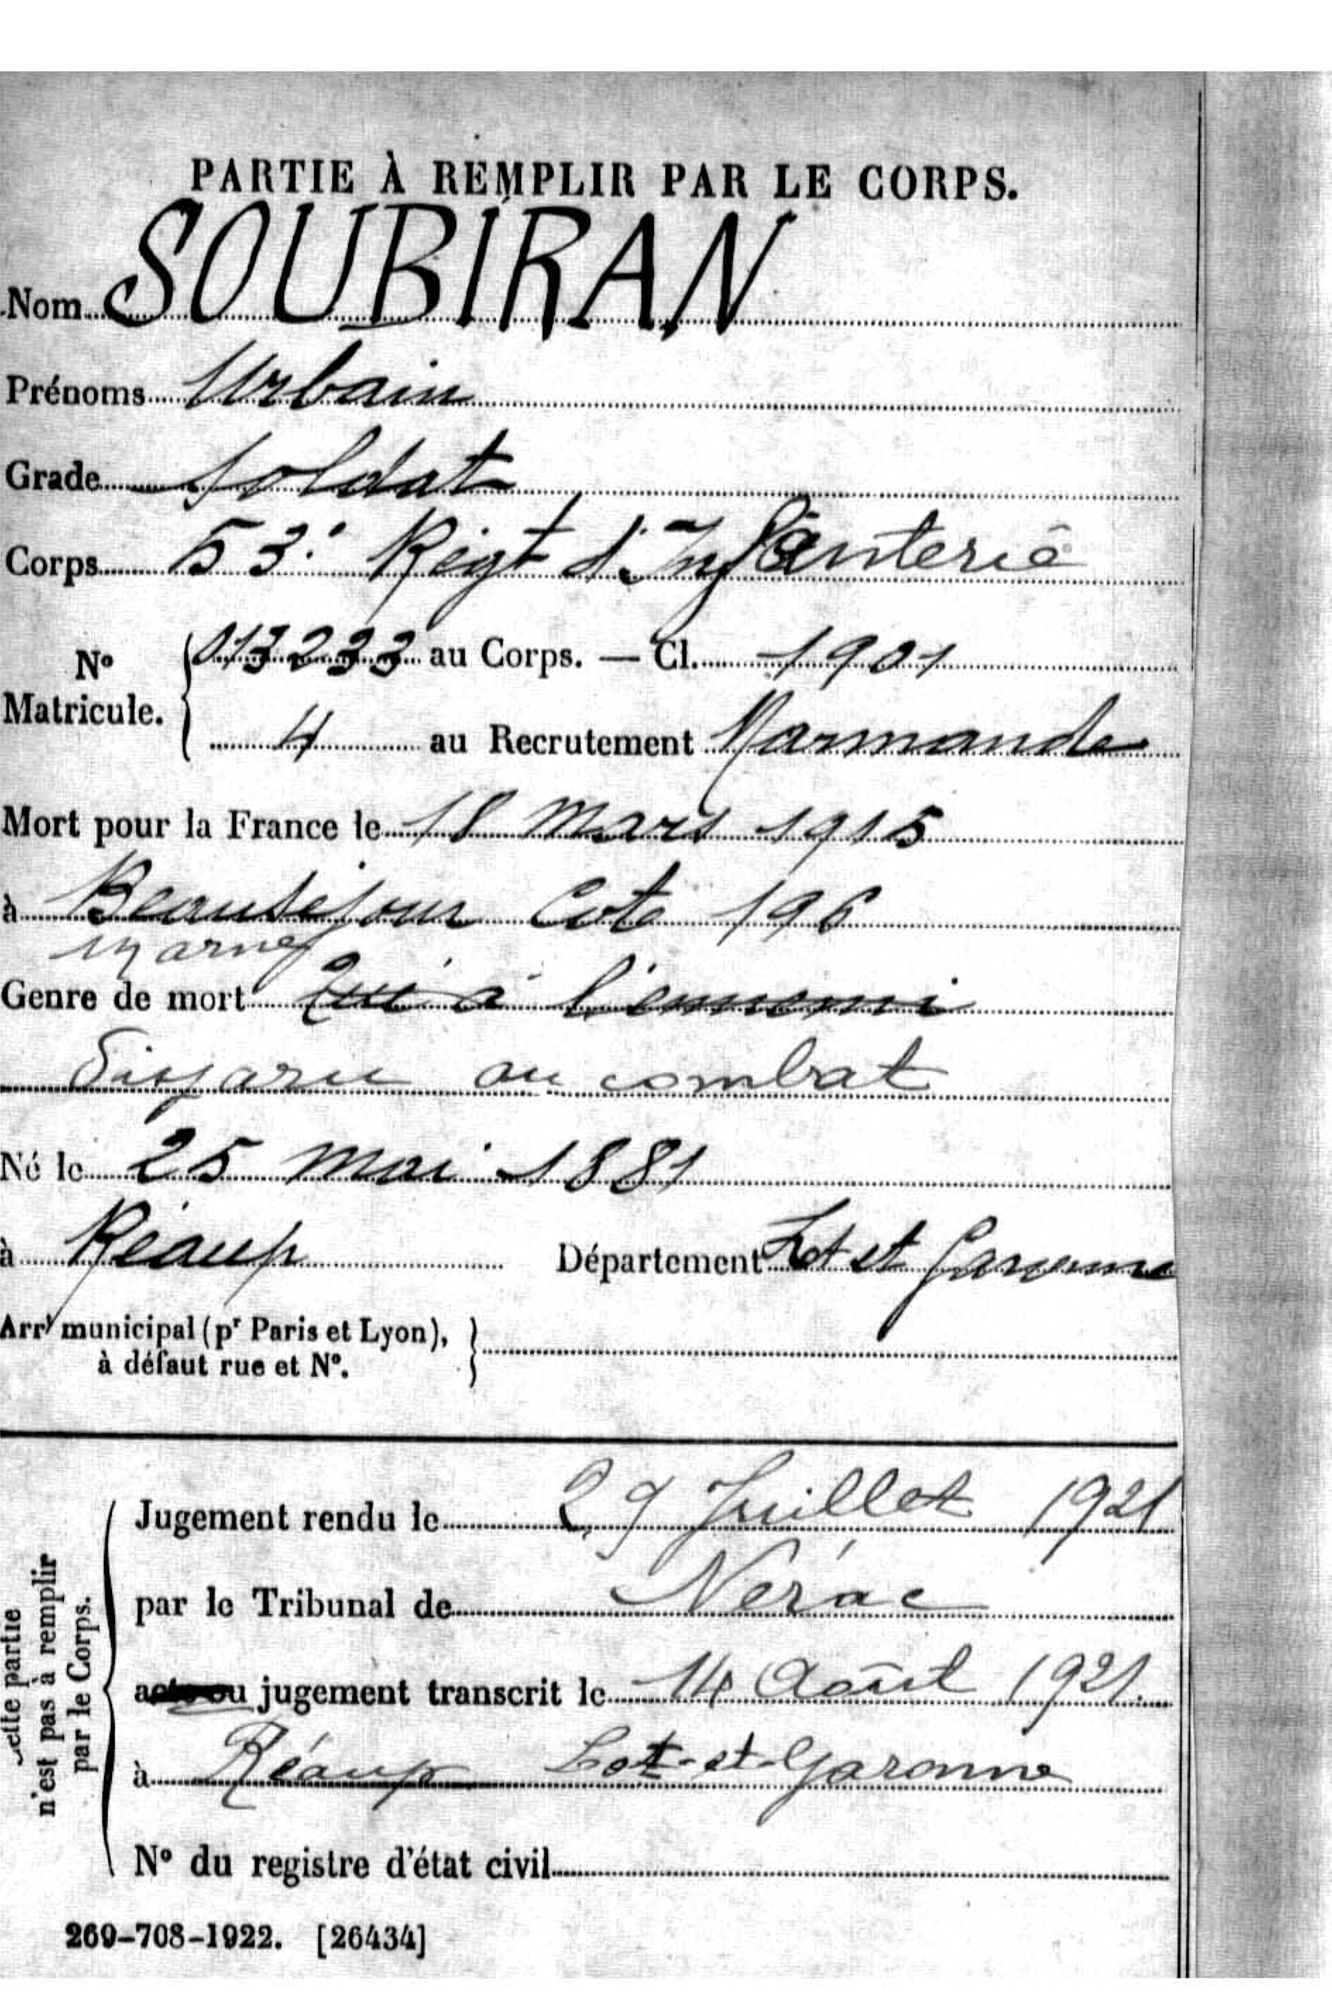 PARTIE À REMPLIR PAR LE CORPS.
Nom SOUBIRAN
Prénoms Urbain
Grade Soldat
Corps 53e Régt d'Infanterie
No Matricule. 013233 au Corps. — Cl. 1901
4 au Recrutement Marmande
Mort pour la France le 18 Mars 1915
à Beauséjour Cote 196
Marne
Genre de mort Tué à l'ennemi
Disparu au combat
Né le 25 Mai 1881
à Réaup Département Lot et Garonne
Arrt municipal (pr Paris et Lyon),
à défaut rue et No.
Cette partie
n'est pas à remplir
par le Corps.
Jugement rendu le 29 Juillet 1921
par le Tribunal de Nérac
acte ou jugement transcrit le 14 Août 1921.
à Réaup Lot-et-Garonne
No du registre d'état civil
269-708-1922. [26434]